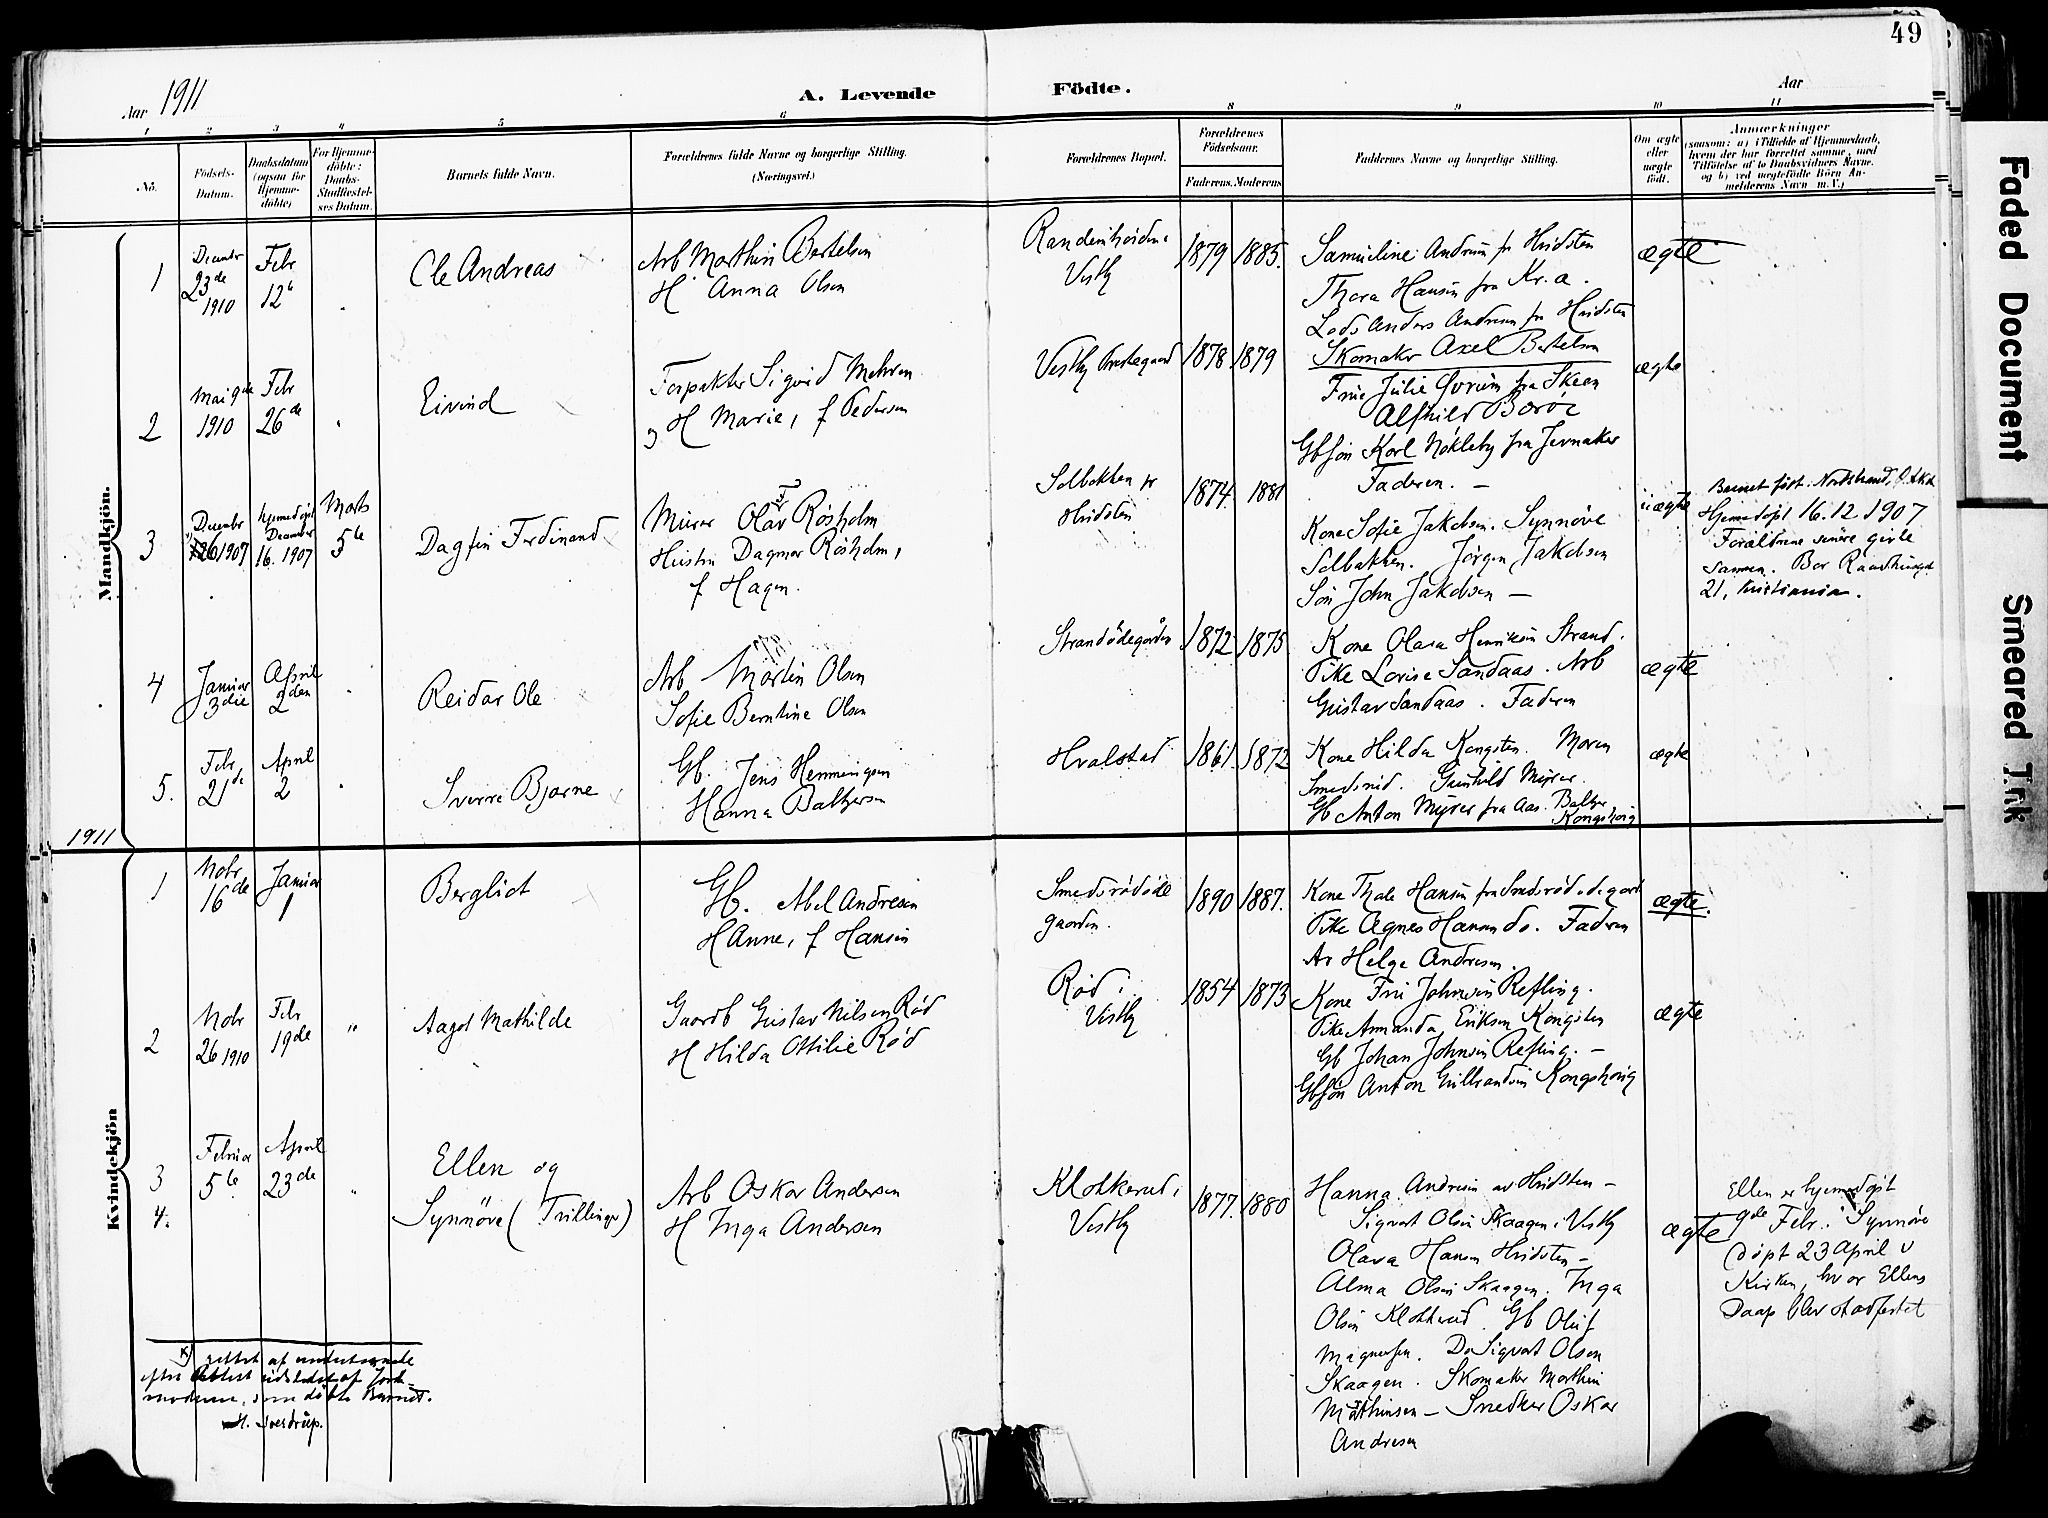 49
Aar 1911
A. Levende Födte.
Aar
1 2 3 4 5 6 8 9 10 11
No.
Födsels-Datum.
Daabsdatum (ogsaa for Hjemme-döbte)
For Hjemme-döbte: Daabs-Stadfæstel-ses Datum.
Barnets fulde Navn.
Forældrenes fulde Navne og borgerlige Stilling. (Næringsvei.)
Forældrenes Bopæl.
Forældrenes Födselsaar.
Faderens. Moderens.
Faddernes Navne og borgerlige Stilling.
Om ægte eller uægte födt.
Anmærkninger
(saasom: a) i Tilfælde af Hjemmedaab,
hvem der har forrettet samme, med
Tilföielse af to Daabsvidners Navne.
og b) ved uægtefödte Börn An-
melderens Navn m. V.)
Mandkjön.
1
December 23de 1910
Febr 12te
Ole Andreas
Arb Marthin Bertelsen
H Anna Olsen
Randemhöiden i
Vestby
1879 1885.
Samueline Andresen fr Hvidsten
Thora Hansen fra Kr.a.
Lods Anders Andresen fr Hvidsten
Skomaker Axel Bertelsen
ægte
2
Mai 9de 1910
Febr 26de
Eivind
Forpakter Sigurd Mehren
og H Marie, f Pedersen
Vestby Prestegaard
1878. 1879
Frue Julie fra Skeen
Alfhild Beröe
Gbsön Karl Nökleby fra Jevnaker
Faderen. —
ægte
3
December 1907
hjemmedöpt December 16. 1907
Marts 5te
Dagfin Ferdinand
Murer Olav F Røsholm
Hustru Dagmar Røsholm,
f Hagen.
Solbakken pr
Hvidsten
1874. 1881
Kone Sofie Jakobsen. Synnöve
Solbakken. Jörgen Jakobsen
Sön John Jakobsen —
uægte
Barnet födt i Nordstrand, Ø. Aker
Hjemmedöpt 16.12.1907
Forældrene senere givte
sammen. Bor Raadhusgt
21, Kristiania.
4
Januar 3die
April 2den
Reidar Ole
Arb Martin Olsen
Sofie Berntine Olsen
Strandödegaarden
1872. 1875
Kone Olava Henriksen Strand.
Pike Lovise Sandaas. Arb
Gustav Sandaas. Faderen
ægte
5.
Febr 21de
April 2
Sverre Bjarne
Gb. Jens Hemmingsen
Hanna Baltzersen
Hvalstad
1861. 1872
Kone Hilda Kongsten. Maren
Smedsrud. Gunhild Myrer.
Gb Anton Myrer fra Aas. Baltzer
Kongshaug
ægte
1911
Kvindekjön
1
Novbr 16de
Januar 1
Bergliot
Gb. Abel Andresen
H Anne, f Hansen
Smedsrödöde
gaarden.
1890 1887.
Kone Thale Hansen fra Smedsröd
Pike Agnes Hansen do. Faderen
Av Helge Andresen.
ægte.
2
Novbr 26 1910
Febr 19de
"
Aagot Mathilde
Gaardb Gustav Nilsen Röd
H Hilda Ottilie Röd
Röd i
Vestby
1854 1873
Kone Fru Johnsen Refling.
Pike Amanda Eriksen Kongsten
Gb Johan Johnsen Refling. —
Gbsön Anton Gulbrandsen Kongshaug
ægte
3
4.
Februar 5te
April 23de
Ellen og
Synnöve (Tvillinger)
Arb Oskar Andersen
H Inga Andersen
Klokkerud i
Vestby
1877. 1880
Hanna Andresen av Hvidsten —
Sigvart Olsen Skaagen i Vestby
Olava Hansen Hvidsten —
Alma Olsen Skaagen. Inga
Olsen Klokkerud. Gb Oluf
Magnussen. Do Sigvart Olsen
Skaagen. Skomaker Marthin
Mathinsen — Snedker Oskar
Andresen
ægte
Ellen er hjemmedöpt
9de Febr. Synnöve
döpt 23 April i
Kirken, hvor Ellens
Daap blev stadfestet
x) rettet af undertegnede
efter Attest udstedet af Jord-
moderen, som döbte Barnet.
H. Sverdrup.
Faded Document
Smeared Ink